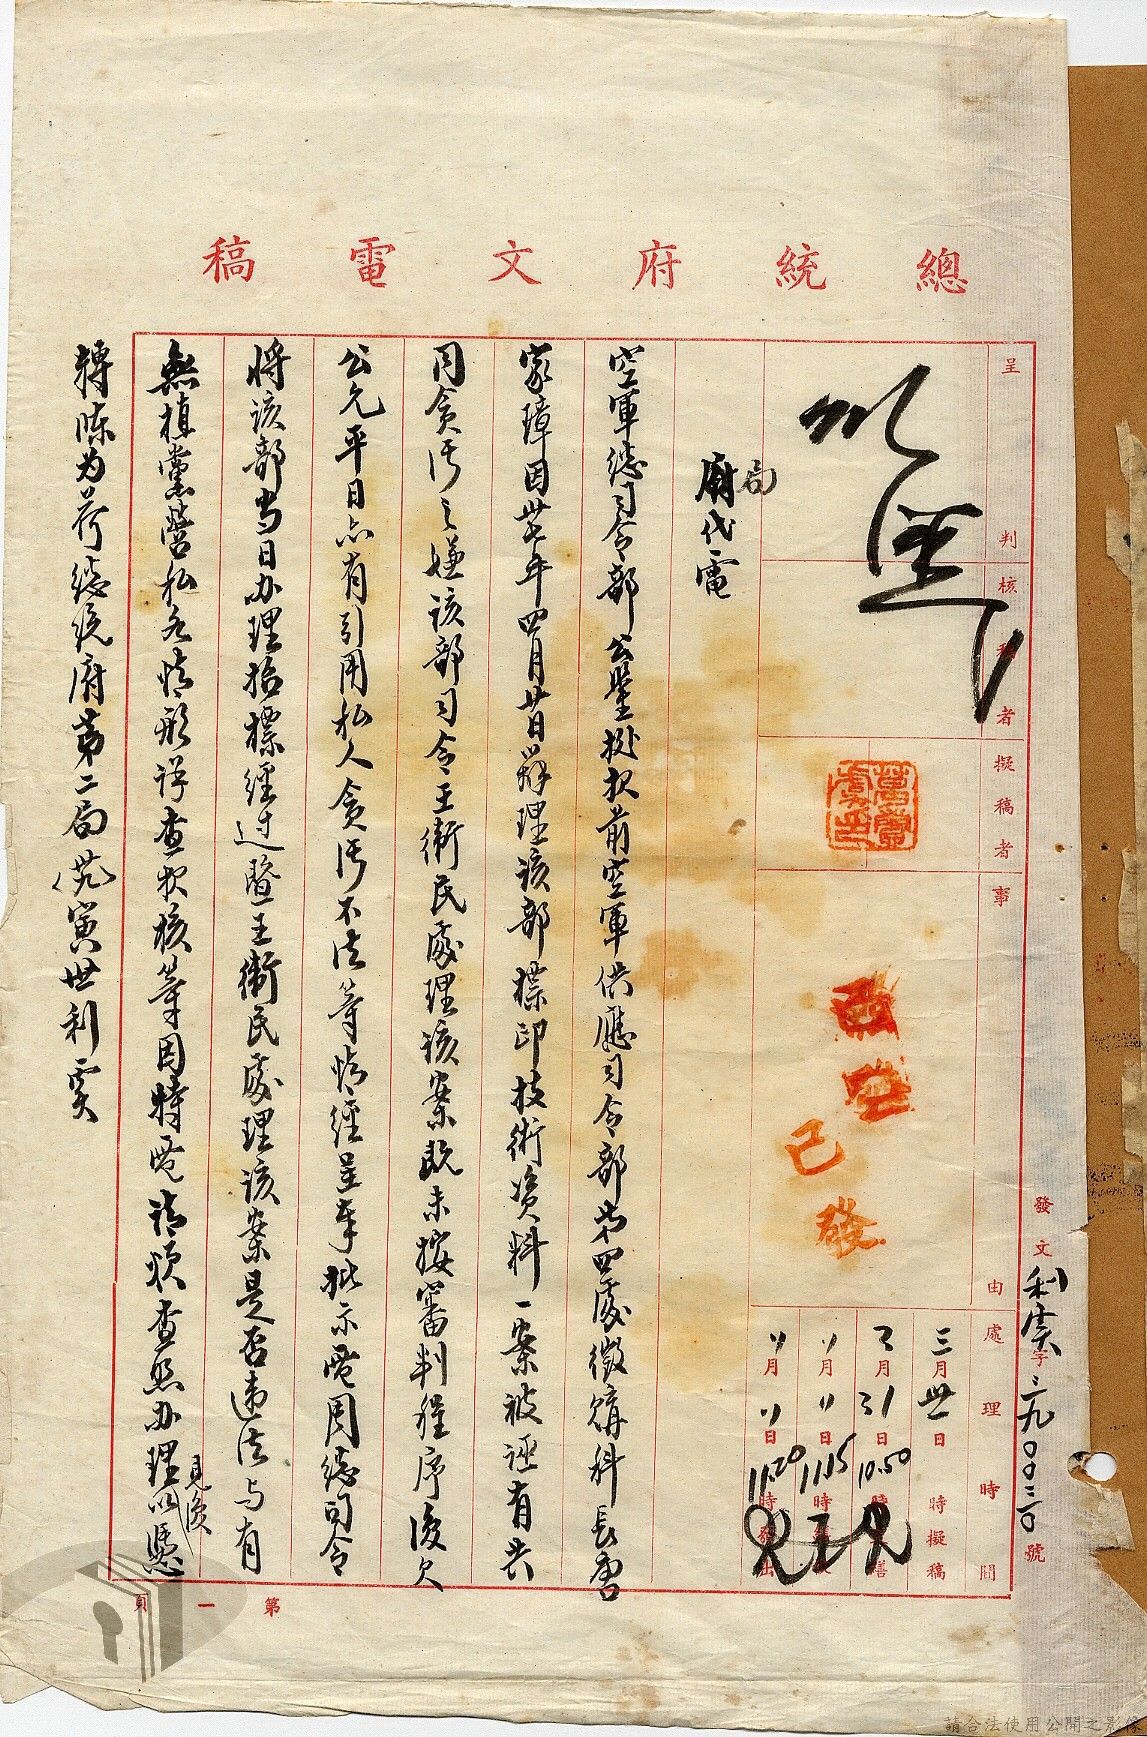 總統府文電稿
呈判
核稿者
擬稿者
事由
處理時間
三月卅一日 時擬稿
3月31日10.50時繕
11月11日11.15時
11月11日11.20時發出
發文利字三九〇〇三二〇號
已發
局
府代電
空軍總司令部公鑒據報前空軍供應司令部第四處徵購科長曹
家璋因卅七年四月廿日辦理該部標印技術資料一案被誣有共
同貪污之嫌該部司令王衛民處理該案既未按審判程序復欠
公允平日亦有引用私人貪污不法等情經呈奉批示電周總司令
將該部當日办理招標經過暨王衛民處理該案是否違法与有
無植黨營私各情形詳查報核等因特電請煩查照办理見復以憑
轉陳为荷總統府第二局(卅九)寅世利
第一頁
請合法使用公開之影像